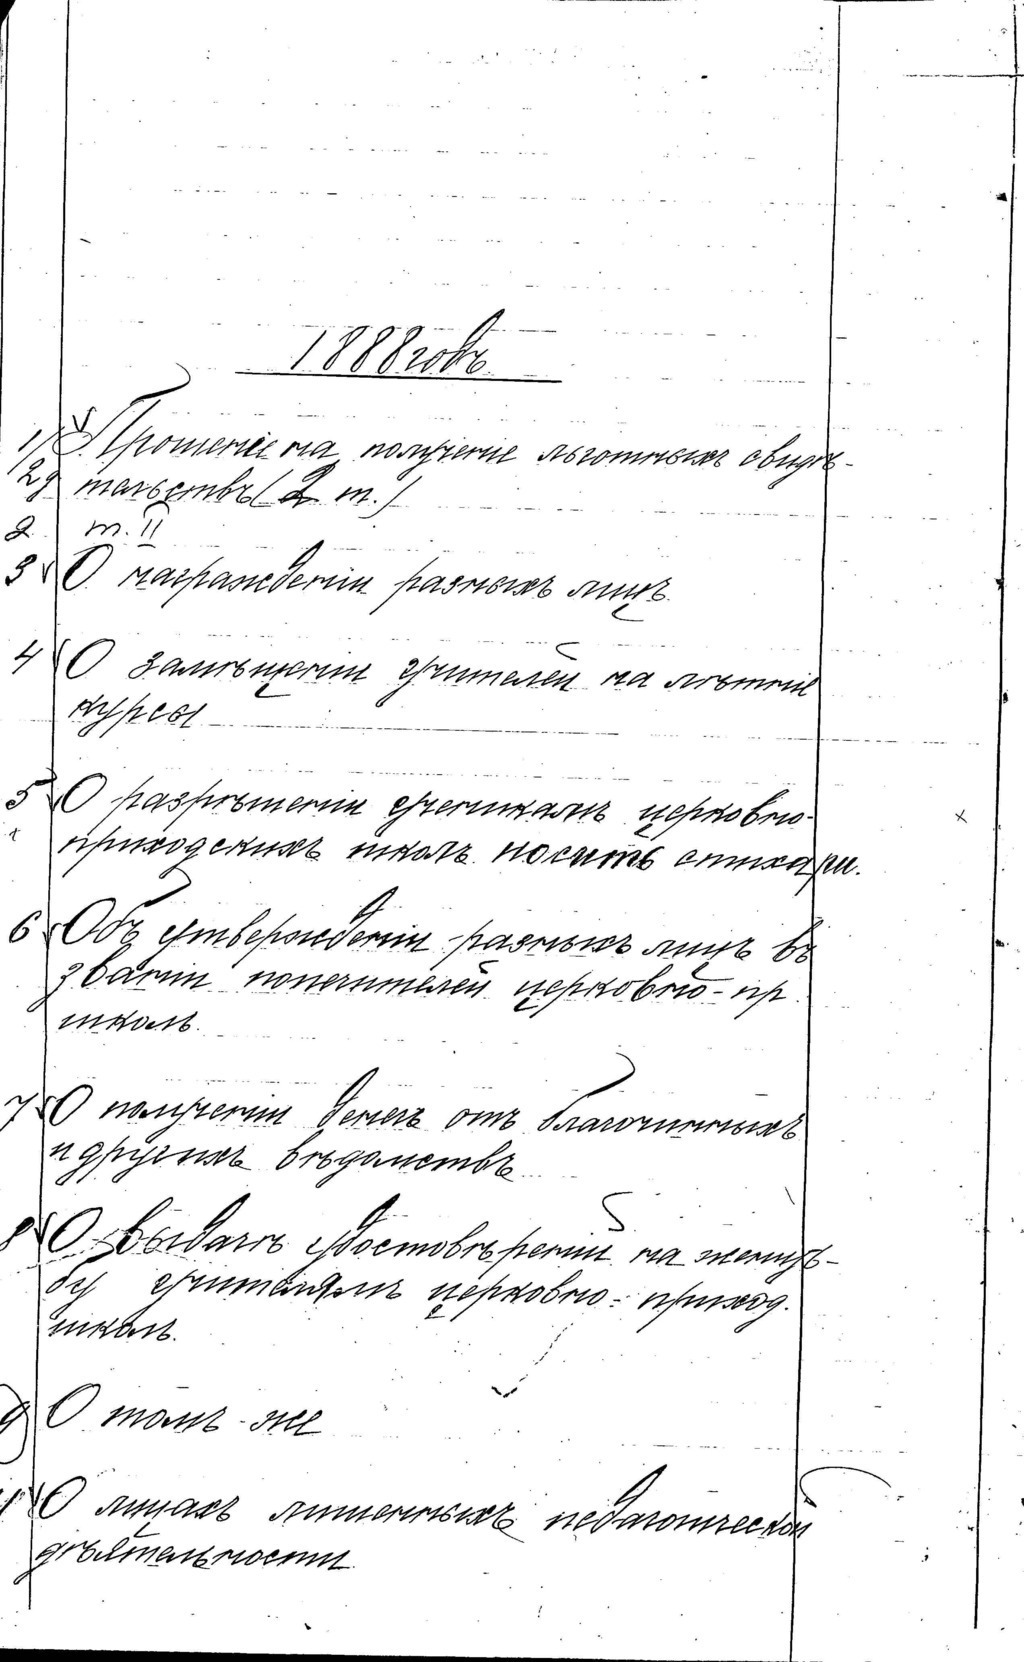 1888 годъ
1) Прошенiе на полученiе льготныхъ свидѣ-
2) тельствъ (2 т.)
2 т. II
3 О награжденiи разныхъ лицъ
4 О замѣщенiи учителей на лѣтнiе
курсы
5 О разрѣшенiи ученикамъ церковно-
приходскихъ школъ носить стихари.
6 Объ утвержденiи разныхъ лицъ въ
званiи попечителей церковно-пр
школъ.
7 О полученiи денегъ отъ благочинныхъ
и другихъ вѣдомствъ
8 О выдачѣ удостовѣренiй на женидь-
бу учителямъ церковно-приход.
школъ.
9 О томъ-же
О лицахъ лишенныхъ педагогической
дѣятельности